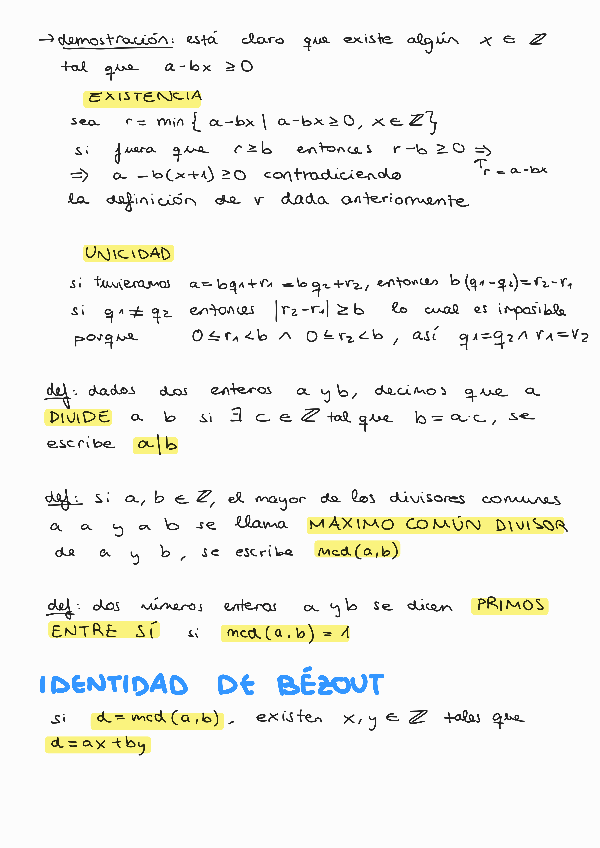 → demostración: está claro que existe algún x ∈ ℤ
tal que a-bx ≥ 0
EXISTENCIA
sea r = min { a-bx | a-bx ≥ 0, x ∈ ℤ }
si fuera que r ≥ b entonces r-b ≥ 0 ⇒
⇒ a -b(x+1) ≥ 0 contradiciendo ↑r = a-bx
la definición de r dada anteriormente
UNICIDAD
si tuvieramos a=bq1+r1 =bq2+r2, entonces b(q1-q2)=r2-r1
si q1 ≠ q2 entonces |r2-r1| ≥ b lo cual es imposible
porque 0 ≤ r1 < b ∧ 0 ≤ r2 < b , así q1=q2 ∧ r1=r2
def: dados dos enteros a y b, decimos que a
DIVIDE a b si ∃ c ∈ ℤ tal que b = a·c, se
escribe a|b
def: si a, b ∈ ℤ, el mayor de los divisores comunes
a a y a b se llama MAXIMO COMÚN DIVISOR
de a y b, se escribe mcd(a,b)
def: dos números enteros a y b se dicen PRIMOS
ENTRE SÍ si mcd(a,b) = 1
IDENTIDAD DE BÉZOUT
si d = mcd(a,b), existen x, y ∈ ℤ tales que
d = ax + by